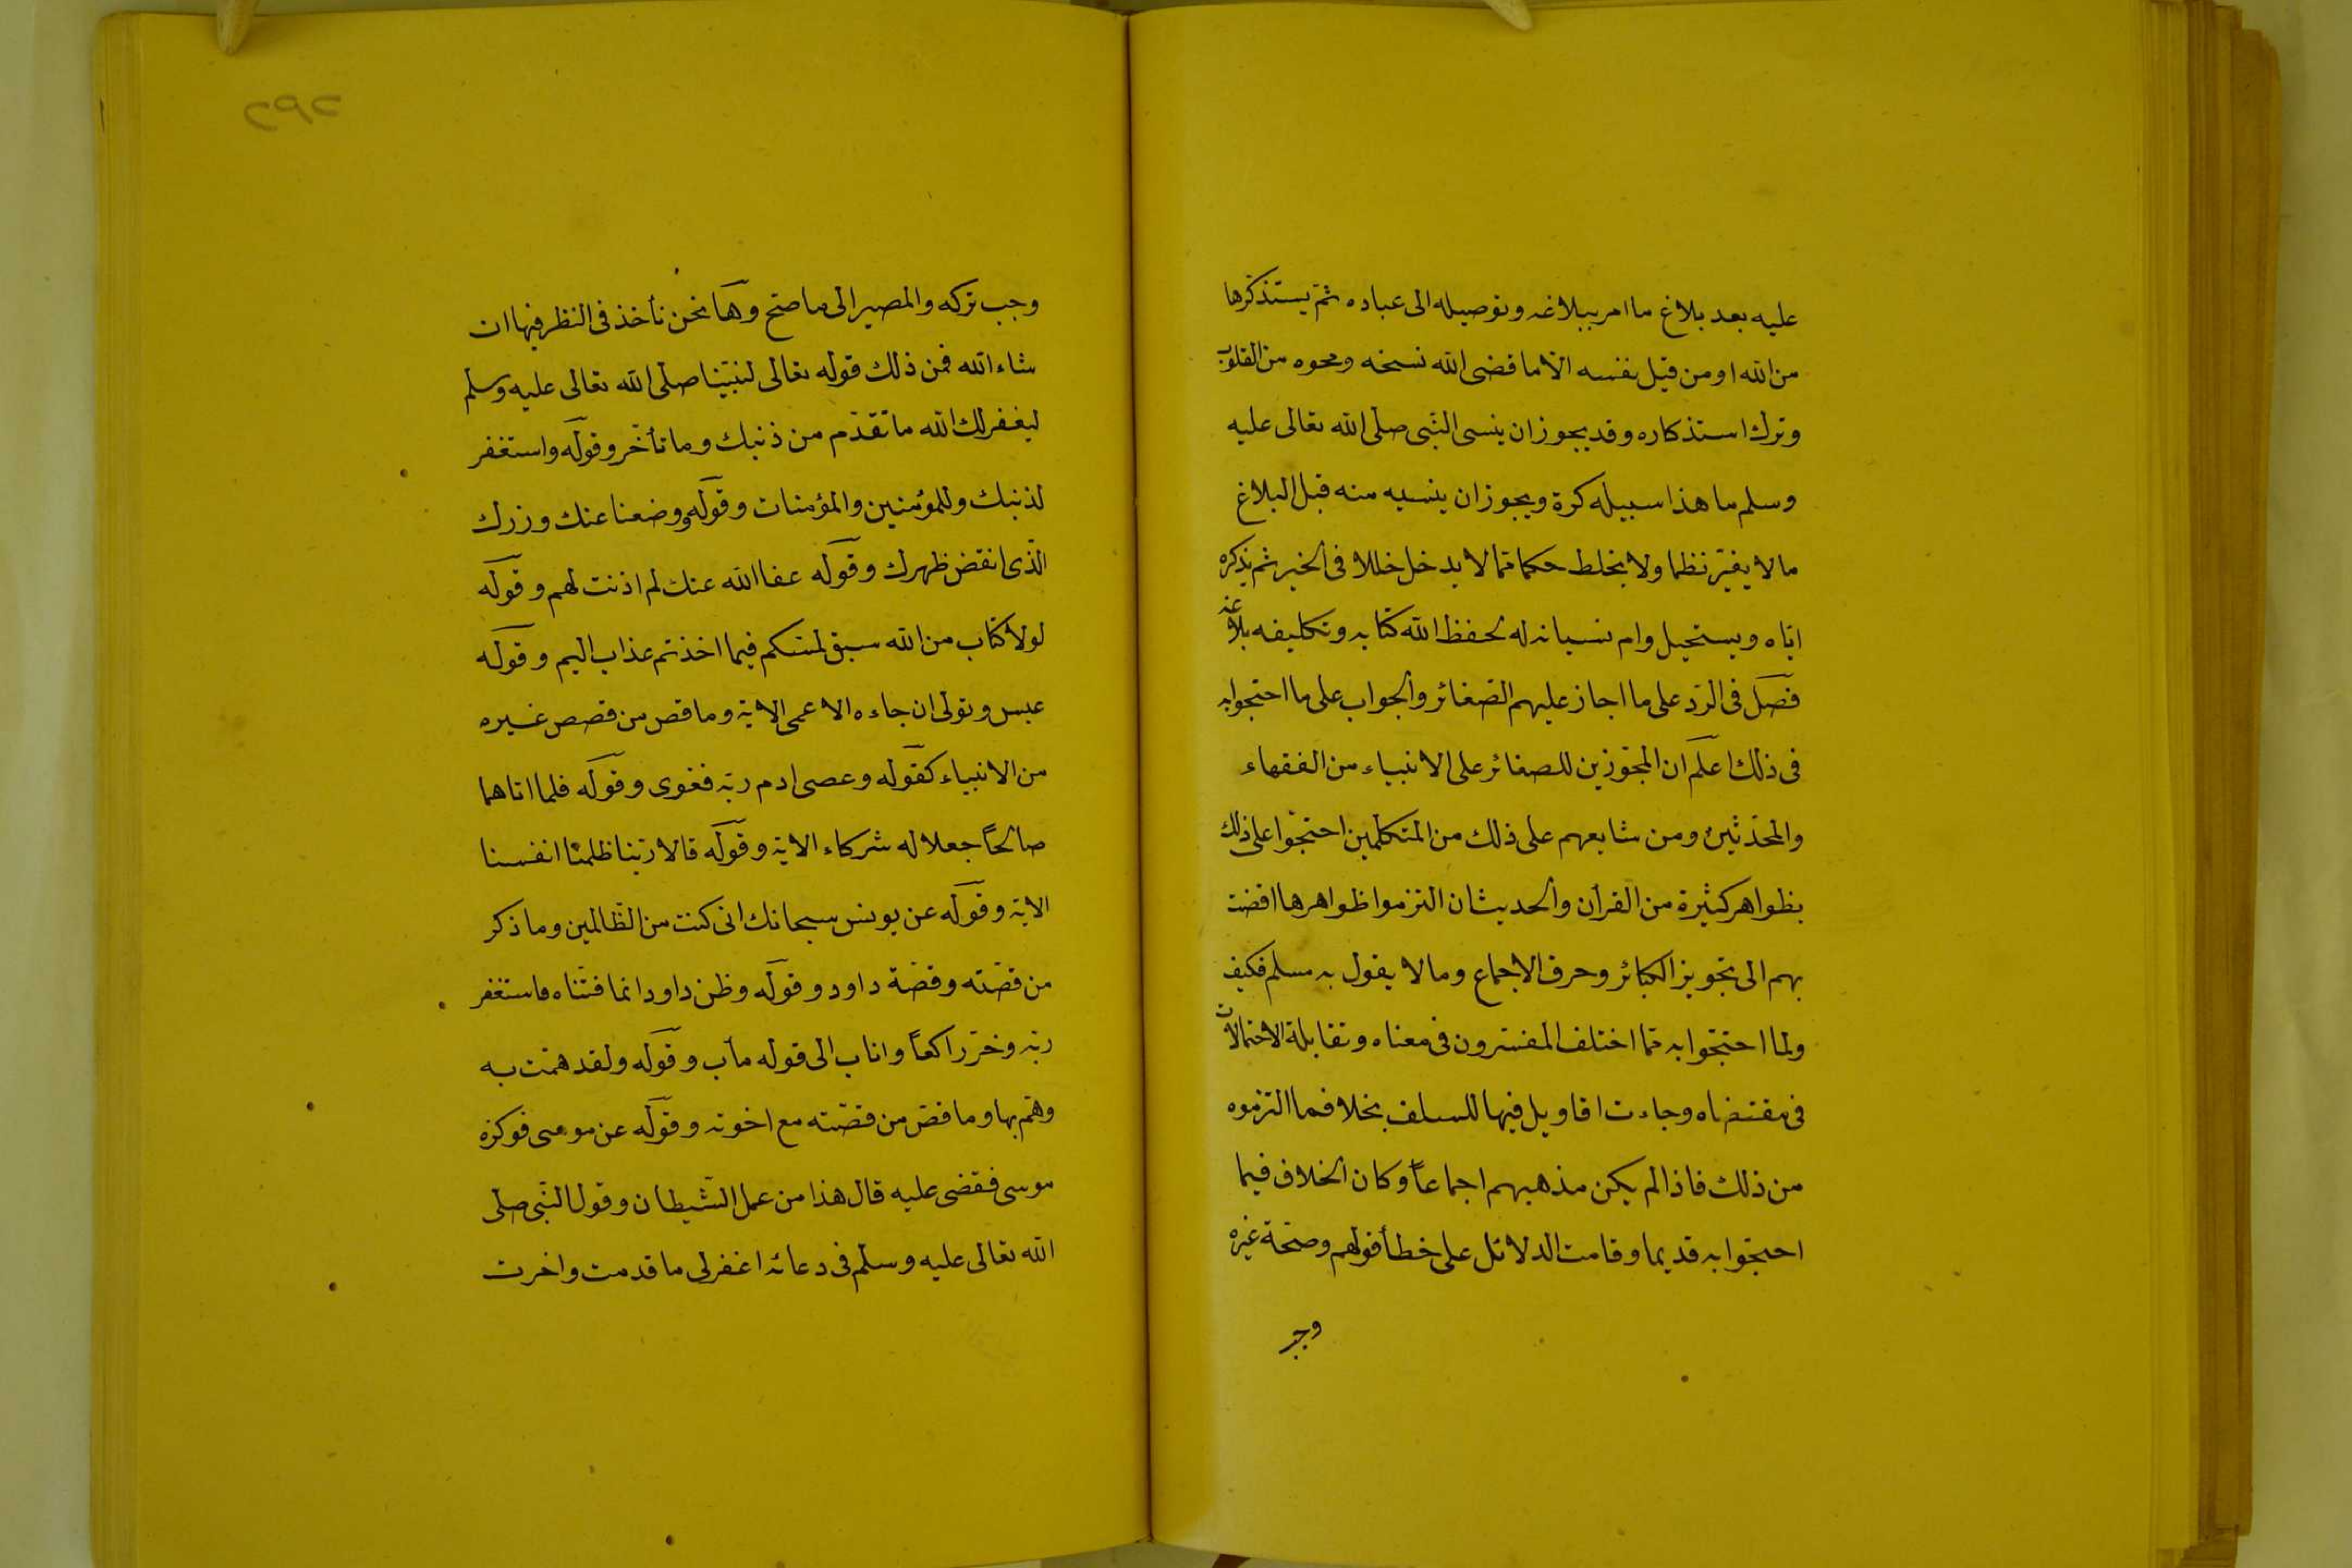 عليه بعد بلاغ ما امر ببلاغه وتوصيله الى عباده ثم يستذكرها
من الله او من قبل نفسه الا ما قضى الله نسخه ومحوه من القلوب
وترك استذكاره وقد يجوز ان ينسى النبى صلى الله تعالى عليه
وسلم ما هذا سبيله كرة ويجوز ان ينسيه منه قبل البلاغ
ما لا يغير نظما ولا يخلط حكما مما لا يدخل خللا فى الخبر ثم يذكره
اياه ويستحيل دوام نسيانه له لحفظ الله كتابه وتكليفه بلاغه
فصل فى الرد على ما اجاز عليهم الصغائر والجواب على ما احتجوا به
فى ذلك اعلم ان المجوزين للصغائر على الانبياء من الفقهاء
والمحدثين ومن شايعهم على ذلك من المتكلمين احتجوا على ذلك
بظواهر كثيرة من القرأن والحديث ان التزموا ظواهرها افضت
بهم الى تجويز الكبائر وخرق الاجماع وما لا يقول به مسلم فكيف
ولما احتجوا به مما اختلف المفسرون فى معناه وتقابلة الاحتمالات
فى مقتضاه وجاءت اقاويل فيها للسلف بخلاف ما التزموه
من ذلك فاذا لم يكن مذهبهم اجماعاً وكان الخلاف فيما
احتجوا به قديما وقامت الدلائل على خطأ قولهم وصحة غيره
وجب
٢٩٢
وجب تركه والمصير الى ما صح وها نحن نأخذ فى النظر فيها ان
شاء الله فمن ذلك قوله تعالى لنبينا صلى الله تعالى عليه وسلم
ليغفر لك الله ما تقدم من ذنبك وما تأخر وقوله واستغفر
لذنبك وللمؤمنين والمؤمنات وقوله ووضعنا عنك وزرك
الذى انقض ظهرك وقوله عفا الله عنك لم اذنت لهم وقوله
لولا كتاب من الله سبق لمسكم فيما اخذتم عذاب اليم وقوله
عبس وتولى ان جاءه الاعمى الاية وما قص من قصص غيره
من الانبياء كقوله وعصى ادم ربه فغوى وقوله فلما اتاهما
صالحاً جعلا له شركاء الاية وقوله قالا ربنا ظلمنا انفسنا
الاية وقوله عن يونس سبحانك انى كنت من الظالمين وما ذكر
من قصته وقصة داود وقوله وظن داود انما فتناه فاستغفر
ربه وخر راكعاً واناب الى قوله مأب وقوله ولقد همت به
وهم بها وما قص من قصته مع اخوته وقوله عن موسى فوكزه
موسى فقضى عليه قال هذا من عمل الشيطان وقول النبى صلى
الله تعالى عليه وسلم فى دعائه اغفر لى ما قدمت واخرت